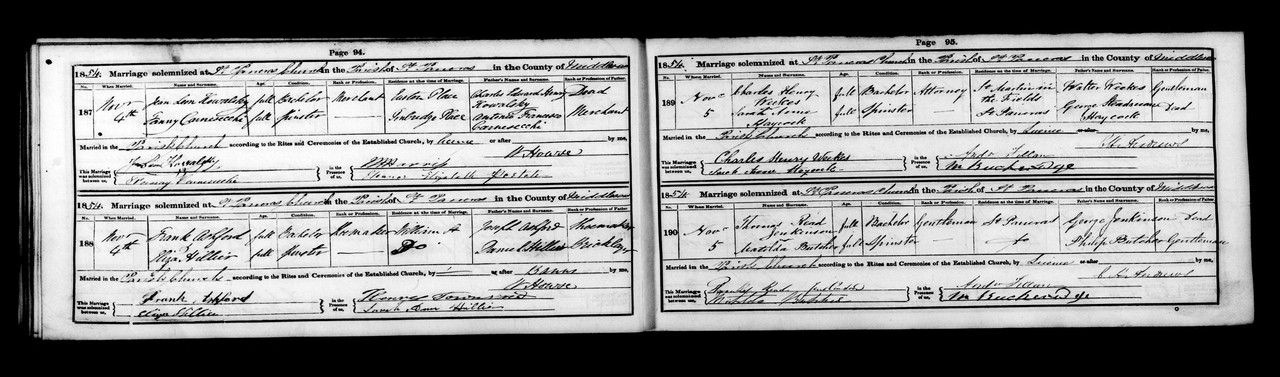 Page 94.
1854. Marriage solemnized at St Pancras Church in the Parish of St Pancras in the County of Middlesex
No. When Married. Name and Surname. Age. Condition. Rank or Profession. Residence at the time of Marriage. Father's Name and Surname. Rank or Profession of Father.
187 Novr 4th Jean Leon Kowalsky full Bachelor Merchant Euston Place Charles Edward Henry Kowalsky Dead
Fanny Carnesecchi full Spinster — Tonbridge Place Antonio Francesco Carnesecchi Merchant
Married in the Parish Church according to the Rites and Ceremonies of the Established Church, by licence or after by me,
W. Howse
This Marriage was solemnized between us, Jean Leon Kowalsky
Fanny Carnesecchi
in the Presence of us, Eleanor Elizabeth
1854. Marriage solemnized at St Pancras Church in the Parish of St Pancras in the County of Middlesex
No. When Married. Name and Surname. Age. Condition. Rank or Profession. Residence at the time of Marriage. Father's Name and Surname. Rank or Profession of Father.
188 Novr 4th Frank Ashford full Bachelor Shoemaker William St Joseph Ashford Shoemaker
Eliza Hillier full Spinster — Do Hillier Bricklayer
Married in the Parish Church according to the Rites and Ceremonies of the Established Church, by — or after Banns by me,
W. Howse
This Marriage was solemnized between us, Frank Ashford
Eliza Hillier
in the Presence of us, Henry Townsend
Sarah Ann Hillier
Page 95.
1854. Marriage solemnized at St Pancras Church in the Parish of St Pancras in the County of Middlesex
No. When Married. Name and Surname. Age. Condition. Rank or Profession. Residence at the time of Marriage. Father's Name and Surname. Rank or Profession of Father.
189 Novr 5 Charles Henry Weekes full Bachelor Attorney St Martin in the Fields Walter Weekes Gentleman
Sarah Anne Haycock full Spinster — St Pancras George Haycock Dead
Married in the Parish Church according to the Rites and Ceremonies of the Established Church, by Licence or after by me,
C. H. Andrews
This Marriage was solemnized between us, Charles Henry Weekes
Sarah Anne Haycock
in the Presence of us,
W Buckeridge
1854. Marriage solemnized at St Pancras Church in the Parish of St Pancras in the County of Middlesex
No. When Married. Name and Surname. Age. Condition. Rank or Profession. Residence at the time of Marriage. Father's Name and Surname. Rank or Profession of Father.
190 Novr 5 Thomas Read Jenkinson full Bachelor Gentleman St Pancras George Jenkinson Dead
Matilda Butcher full Spinster — Do Philip Butcher Gentleman
Married in the Parish Church according to the Rites and Ceremonies of the Established Church, by Licence or after by me,
C. H. Andrews
This Marriage was solemnized between us,
Matilda Butcher
in the Presence of us,
W Buckeridge